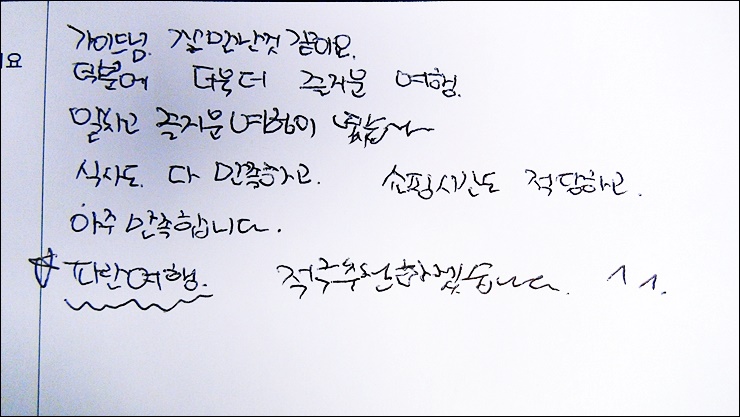 가이드님. 잘 만난것 같아요.
요
덕분에 더욱더 즐거운 여행.
알차고 즐거운 여행이 됐습니다
식사도 다 만족하고. 쇼핑시간도 적당하고.
아주 만족합니다.
☆ 파란여행. 적극추천하겠습니다. ^^.